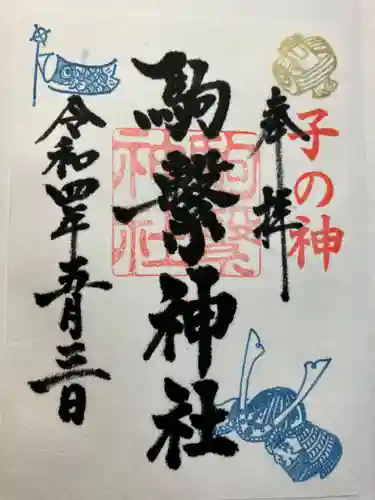 子の神
奉拝
駒繋神社
駒繋神社
令和四年五月三日